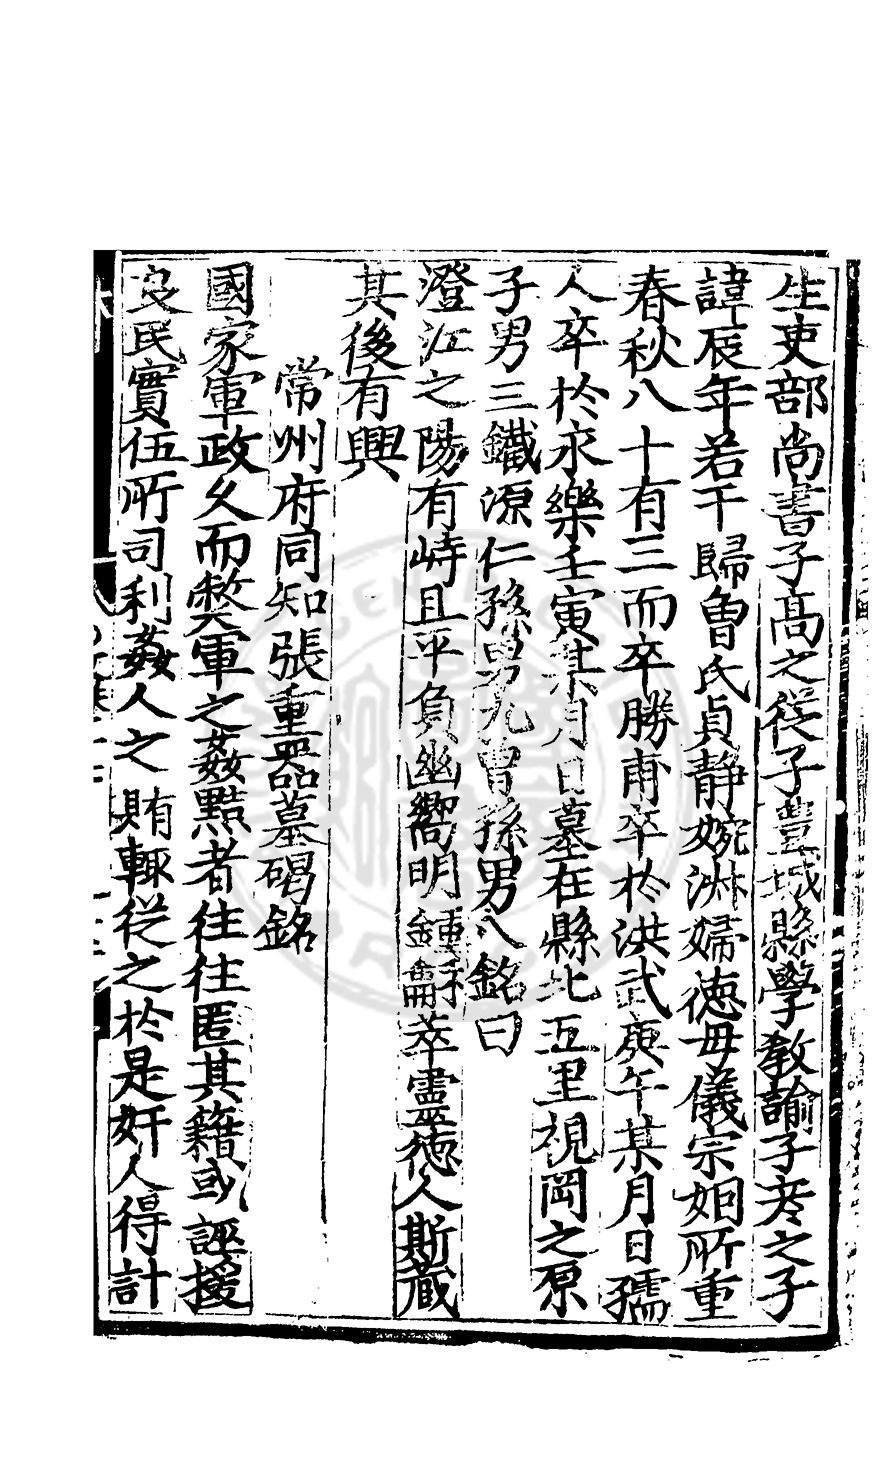 生吏部尚書子高之從子豐城縣學教諭子彦之子
諱辰年若干歸魯氏貞静婉淋婦徳母儀宗姻所重
春秋八十有三而卒勝甫卒於洪武庚午某月日孺
人卒於永樂壬寅某月日墓在縣北五里視岡之原
子男三鐵源仁孫男九曾孫男八銘曰
澄江之陽有峙且平負幽嚮明鍾 萃靈徳人斯藏
其後有興
常州府同知張重器墓碣銘
國家軍政久而獘軍之姦黠者往往匿其籍或誣援
良民實伍所司利姦人之賄輒從之於是奸人得計